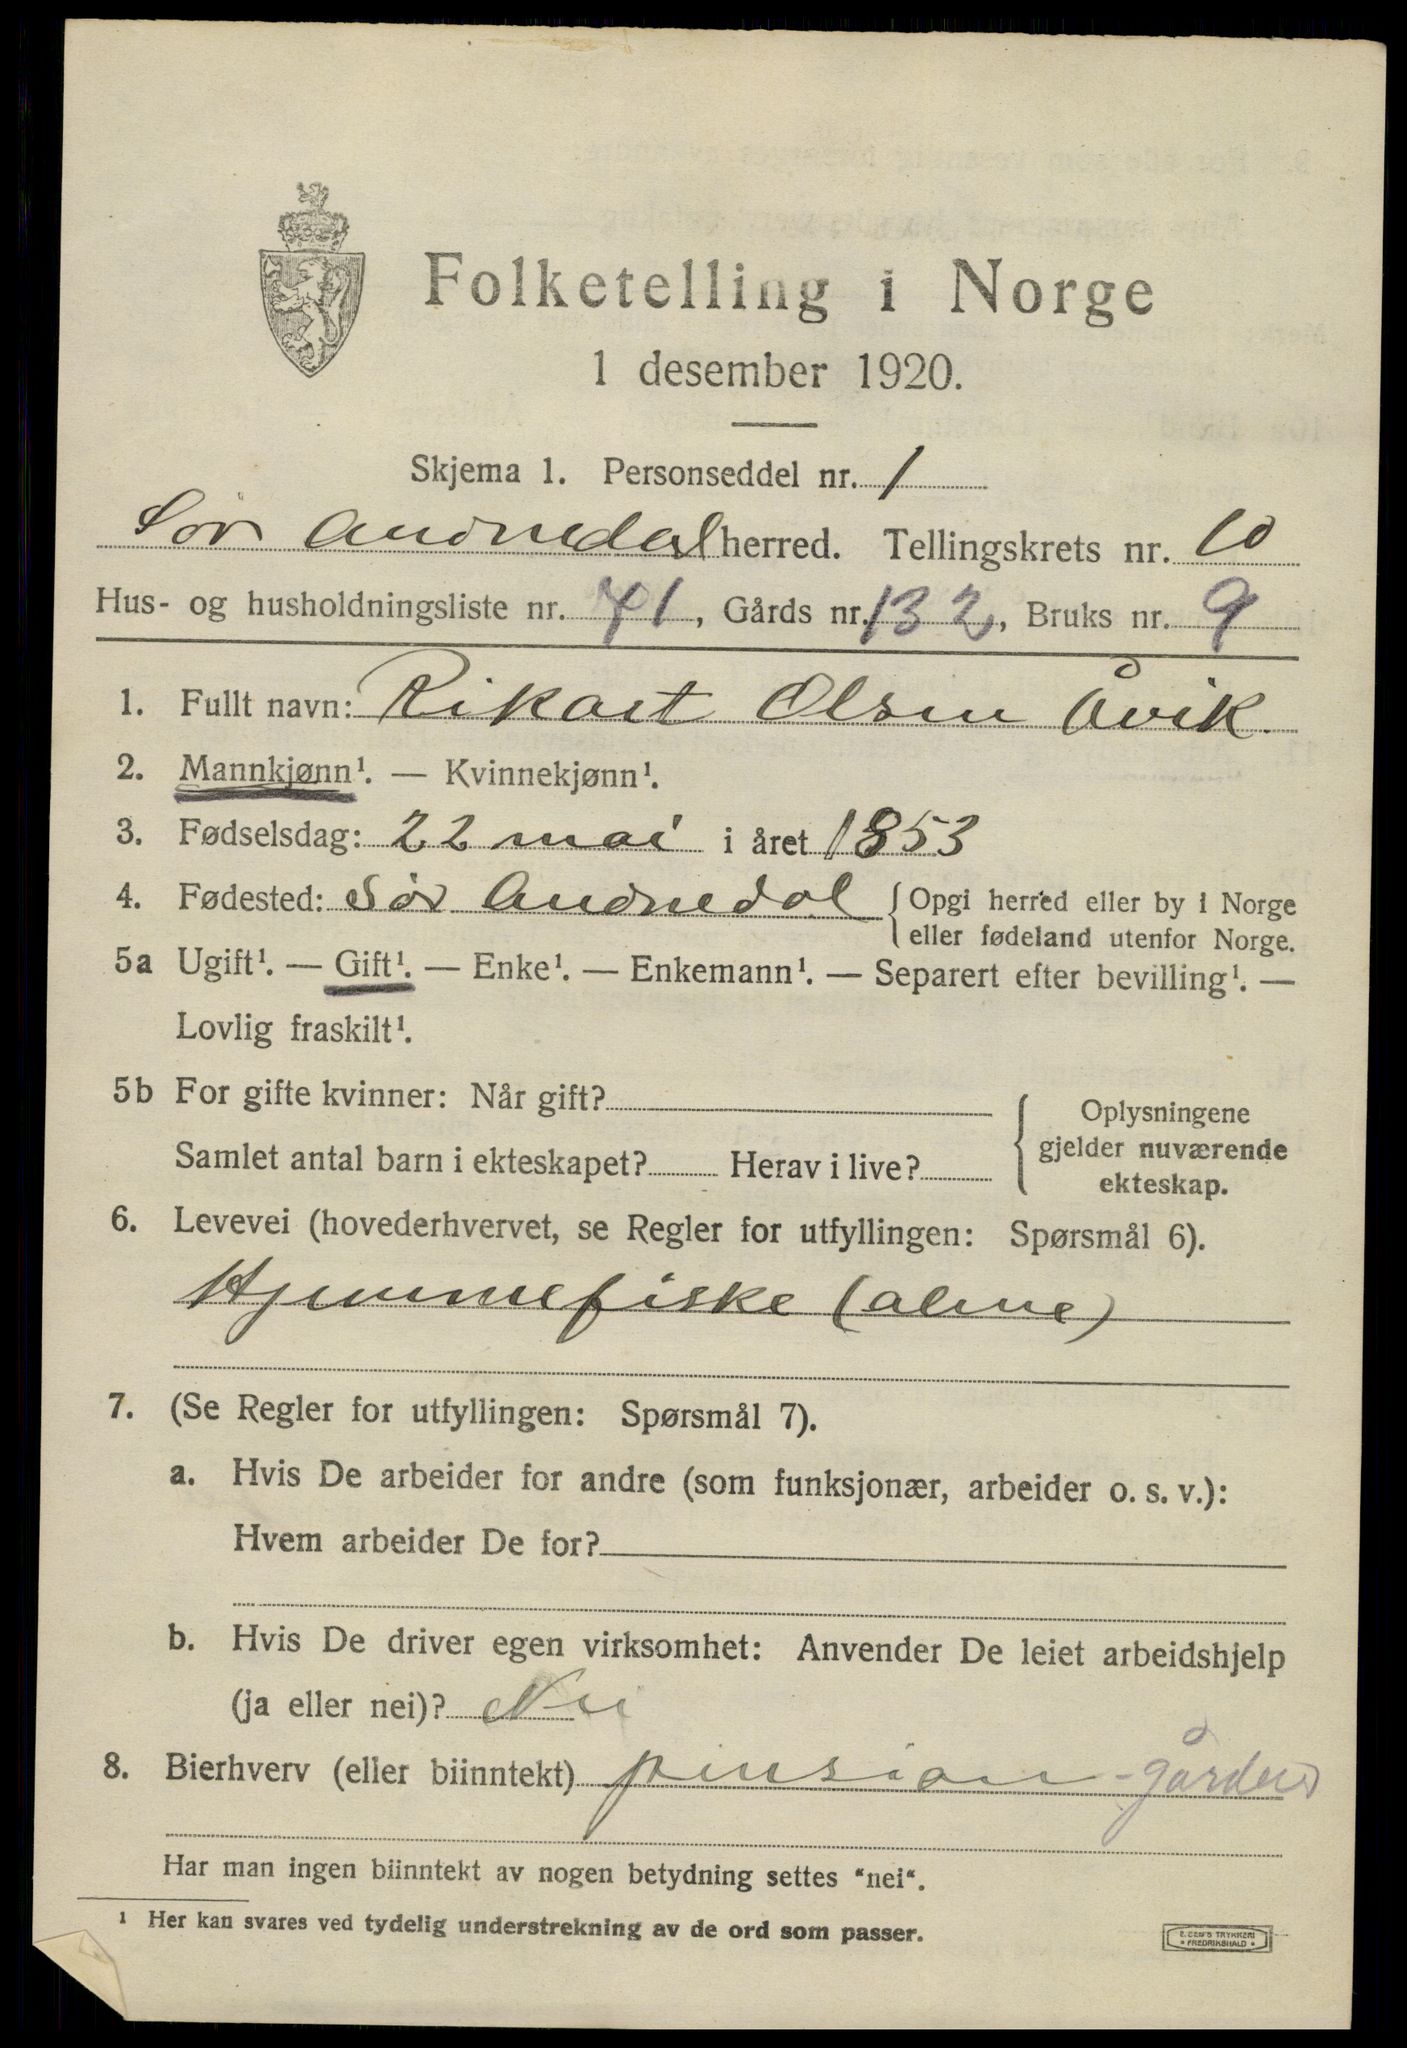 Folketelling i Norge
1 desember 1920.
Skjema 1. Personseddel nr. 1
Sør Audnedal herred. Tellingskrets nr. 10
Hus- og husholdningsliste nr. 71, Gårds nr. 132, Bruks nr. 9
1. Fullt navn: Rikart Olsen Åvik.
2. Mannkjønn¹. — Kvinnekjønn¹.
3. Fødselsdag: 22 mai i året 1853
4. Fødested: Sør Audnedal { Opgi herred eller by i Norge
eller fødeland utenfor Norge.
5a Ugift¹. — Gift¹. — Enke¹. — Enkemann¹. — Separert efter bevilling¹. —
Lovlig fraskilt¹.
5b For gifte kvinner: Når gift?
Samlet antal barn i ekteskapet? Herav i live?
{ Oplysningene
gjelder nuværende
ekteskap.
6. Levevei (hovederhvervet, se Regler for utfyllingen: Spørsmål 6).
Hjemmefiske (alene)
7. (Se Regler for utfyllingen: Spørsmål 7).
a. Hvis De arbeider for andre (som funksjonær, arbeider o. s. v.):
Hvem arbeider De for?
b. Hvis De driver egen virksomhet: Anvender De leiet arbeidshjelp
(ja eller nei)? Nei
8. Bierhverv (eller biinntekt) pension - gårdbr
Har man ingen biinntekt av nogen betydning settes “nei“.
¹ Her kan svares ved tydelig understrekning av de ord som passer.
TRYKKERI
• FREDRIKSHALD •